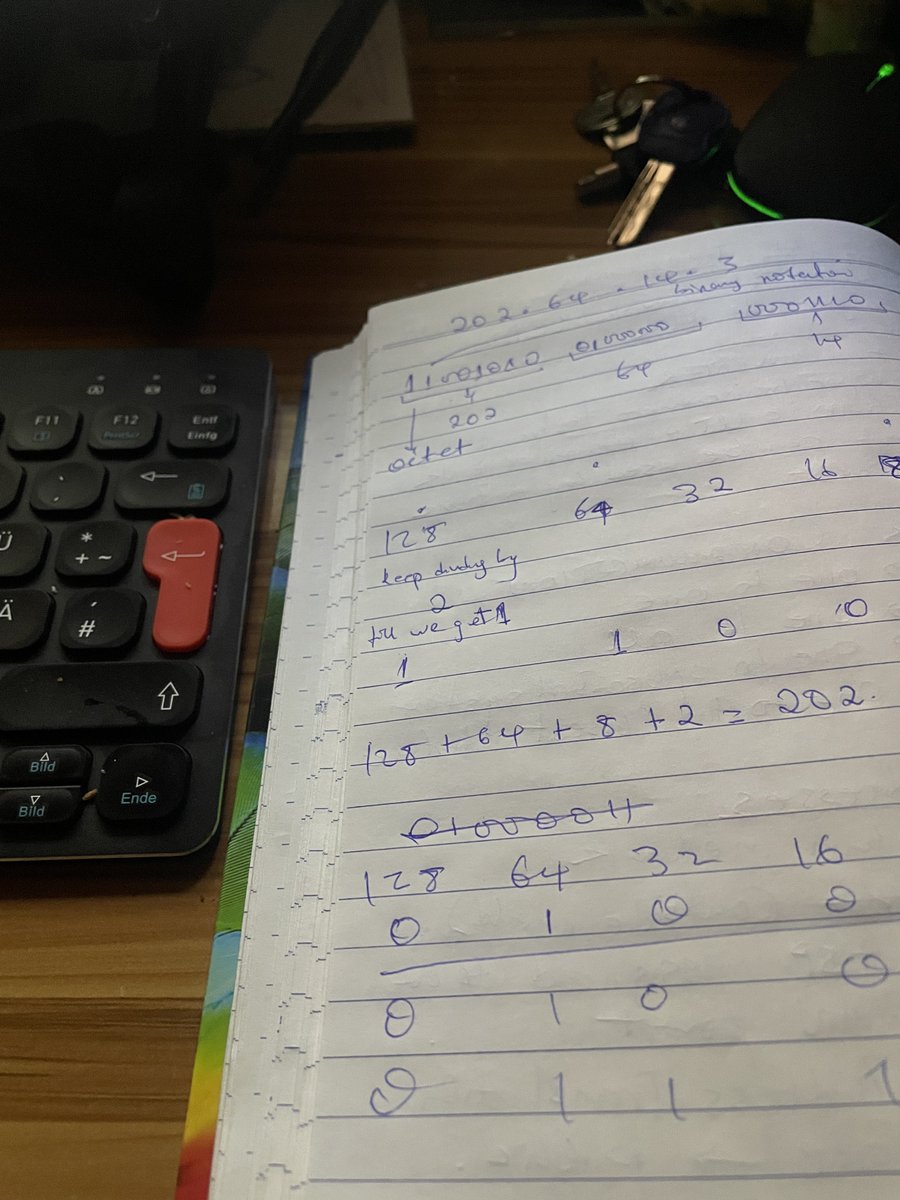 202. 64 . 14. 3
binary notation
11001010 0100000
4 64 14
202
octet
128 64 32 16
keep dividing by
2
till we get 1
1 1 0 0
128 + 64 + 8 + 2 = 202.
128 64 32 16
0 1 0 0
0 1 0 0
0 1 1 1
F11 F12 Entf
Einfg
Ü * + ~
Ä ' #
Bild
Bild Ende